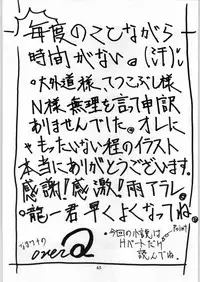 毎度のことながら
時間がない。(汗)
。大外道様、てつこぶし様
N様 無理を言って申訳
ありませんでした。オレに
ゃもったいない程のイラスト
本当にありがとうございます。
感謝!感激!雨アラレ。
。龍一君早くよくなってね。
。今回の小説は
Hパートだけ
読んでね。
Point
over